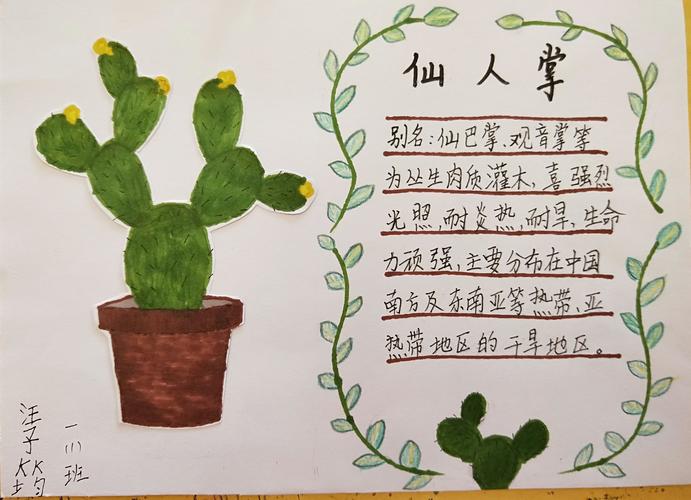 仙人掌
别名:仙巴掌、观音掌等
为丛生肉质灌木,喜强烈
光照,耐炎热,耐旱、生命
力顽强,主要分布在中国
南方及东南亚等热带、亚
热带地区的干旱地区。
一(1)班
汪子筠